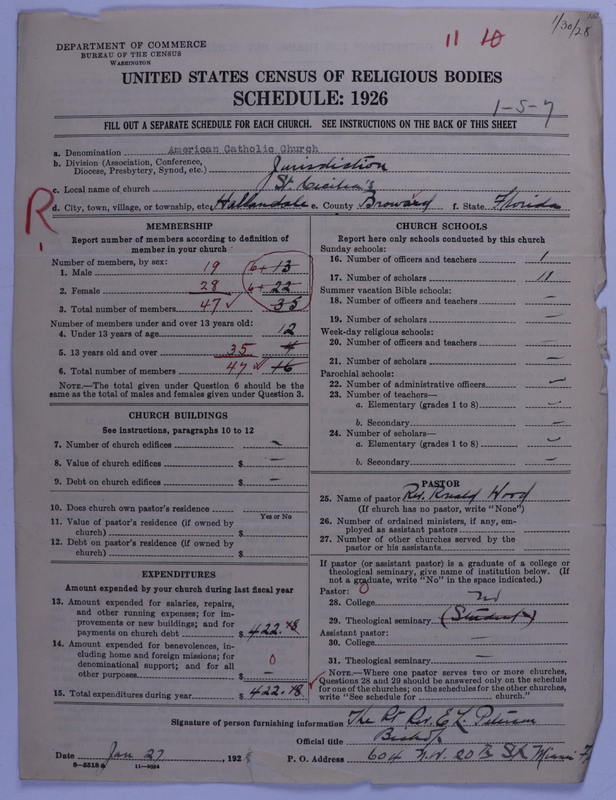 1/30/28
DEPARTMENT OF COMMERCE
BUREAU OF THE CENSUS
WASHINGTON
11 10
UNITED STATES CENSUS OF RELIGIOUS BODIES
SCHEDULE: 1926
1-5-7
FILL OUT A SEPARATE SCHEDULE FOR EACH CHURCH. SEE INSTRUCTIONS ON THE BACK OF THIS SHEET
a. Denomination American Catholic Church
b. Division (Association, Conference, Diocese, Presbytery, Synod, etc.) Jurisdiction
c. Local name of church St. Cecilia's
R
d. City, town, village, or township, etc. Hallandale e. County Broward f. State Florida
MEMBERSHIP
Report number of members according to definition of member in your church
Number of members, by sex:
1. Male 19 6+13
2. Female 28 6+22
3. Total number of members 47 ✓ 35
Number of members under and over 13 years old:
4. Under 13 years of age 12
5. 13 years old and over 35 4
6. Total number of members 47 ✓ 16
NOTE.—The total given under Question 6 should be the same as the total of males and females given under Question 3.
CHURCH BUILDINGS
See instructions, paragraphs 10 to 12
7. Number of church edifices —
8. Value of church edifices $ —
9. Debt on church edifices $ —
10. Does church own pastor's residence
Yes or No
11. Value of pastor's residence (if owned by church) $
12. Debt on pastor's residence (if owned by church) $
EXPENDITURES
Amount expended by your church during last fiscal year
13. Amount expended for salaries, repairs, and other running expenses; for improvements or new buildings; and for payments on church debt $ 422.48
14. Amount expended for benevolences, including home and foreign missions; for denominational support; and for all other purposes 0 $ —
15. Total expenditures during year $ 422.48
CHURCH SCHOOLS
Report here only schools conducted by this church
Sunday schools:
16. Number of officers and teachers 1
17. Number of scholars 11
Summer vacation Bible schools:
18. Number of officers and teachers —
19. Number of scholars —
Week-day religious schools:
20. Number of officers and teachers —
21. Number of scholars —
Parochial schools:
22. Number of administrative officers —
23. Number of teachers—
a. Elementary (grades 1 to 8) —
b. Secondary —
24. Number of scholars—
a. Elementary (grades 1 to 8) —
b. Secondary —
PASTOR
25. Name of pastor Rev. Ronald Wood
(If church has no pastor, write "None")
26. Number of ordained ministers, if any, employed as assistant pastors
27. Number of other churches served by the pastor or his assistants
If pastor (or assistant pastor) is a graduate of a college or theological seminary, give name of institution below. (If not a graduate, write "No" in the space indicated.)
Pastor: 0
28. College No
29. Theological seminary (Student)
Assistant pastor:
30. College —
31. Theological seminary —
NOTE.—Where one pastor serves two or more churches, Questions 28 and 29 should be answered only on the schedule for one of the churches; on the schedules for the other churches, write "See schedule for church."
Signature of person furnishing information The Rt Rev. E L. Peterson
Official title Bishop
Date Jan 27, 192
P. O. Address 604 N.W. 20th St Miami
8-5518a 11-9024